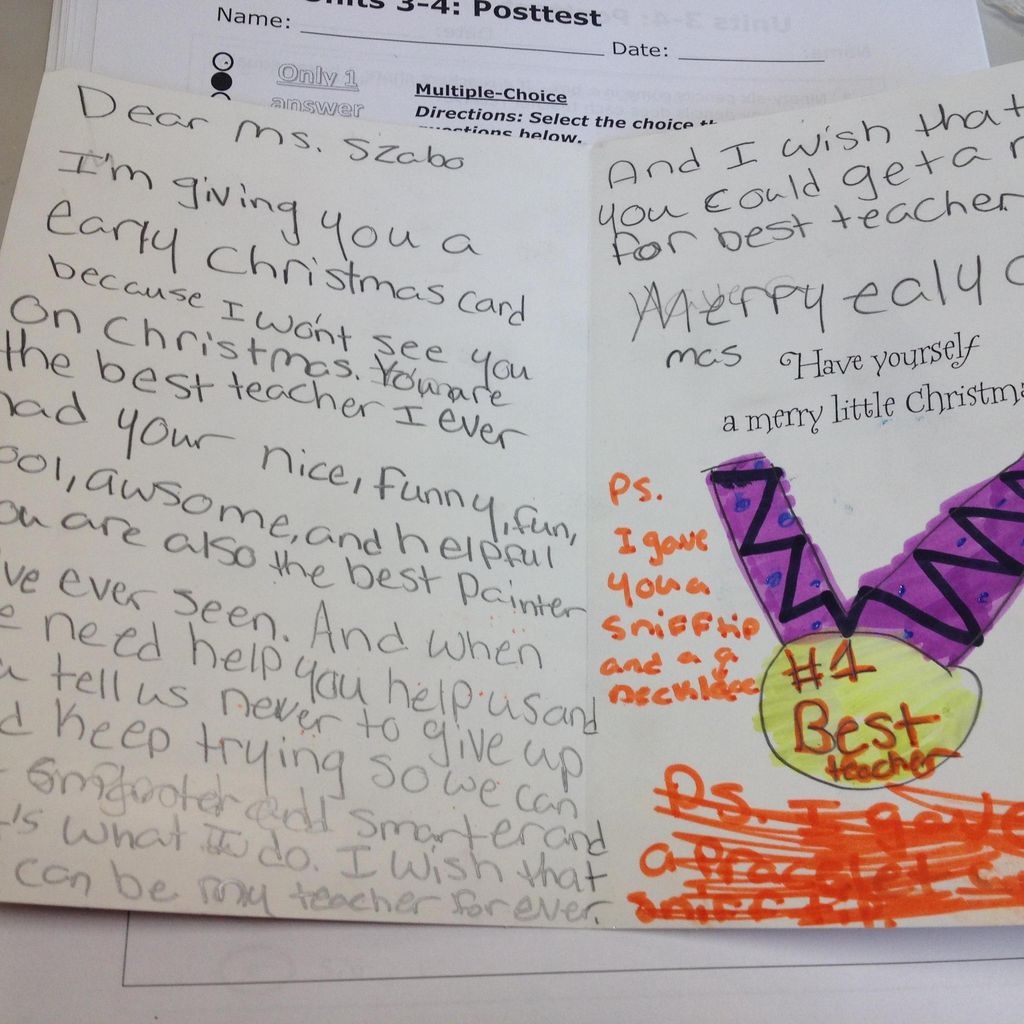 Units 3-4: Posttest
Name: Date:
Only 1
answer
Multiple-Choice
Directions: Select the choice
questions below.
Dear Ms. Szabo
I'm giving you a
early Christmas card
because I won't see you
On Christmas. You are
the best teacher I ever
had your nice, funny, fun,
ool, awsome, and helpful
ou are also the best Painter
've ever seen. And when
e need help you help us and
u tell us never to give up
d keep trying so we can
smarter and
's what I do. I wish that
can be my teacher forever.
And I wish that
you could get a
for best teacher
Merry ealy C
mas
Have yourself
a merry little Christma
Ps.
I gave
you a
and a
necklace
#1
Best
teacher
Ps. I gave
a